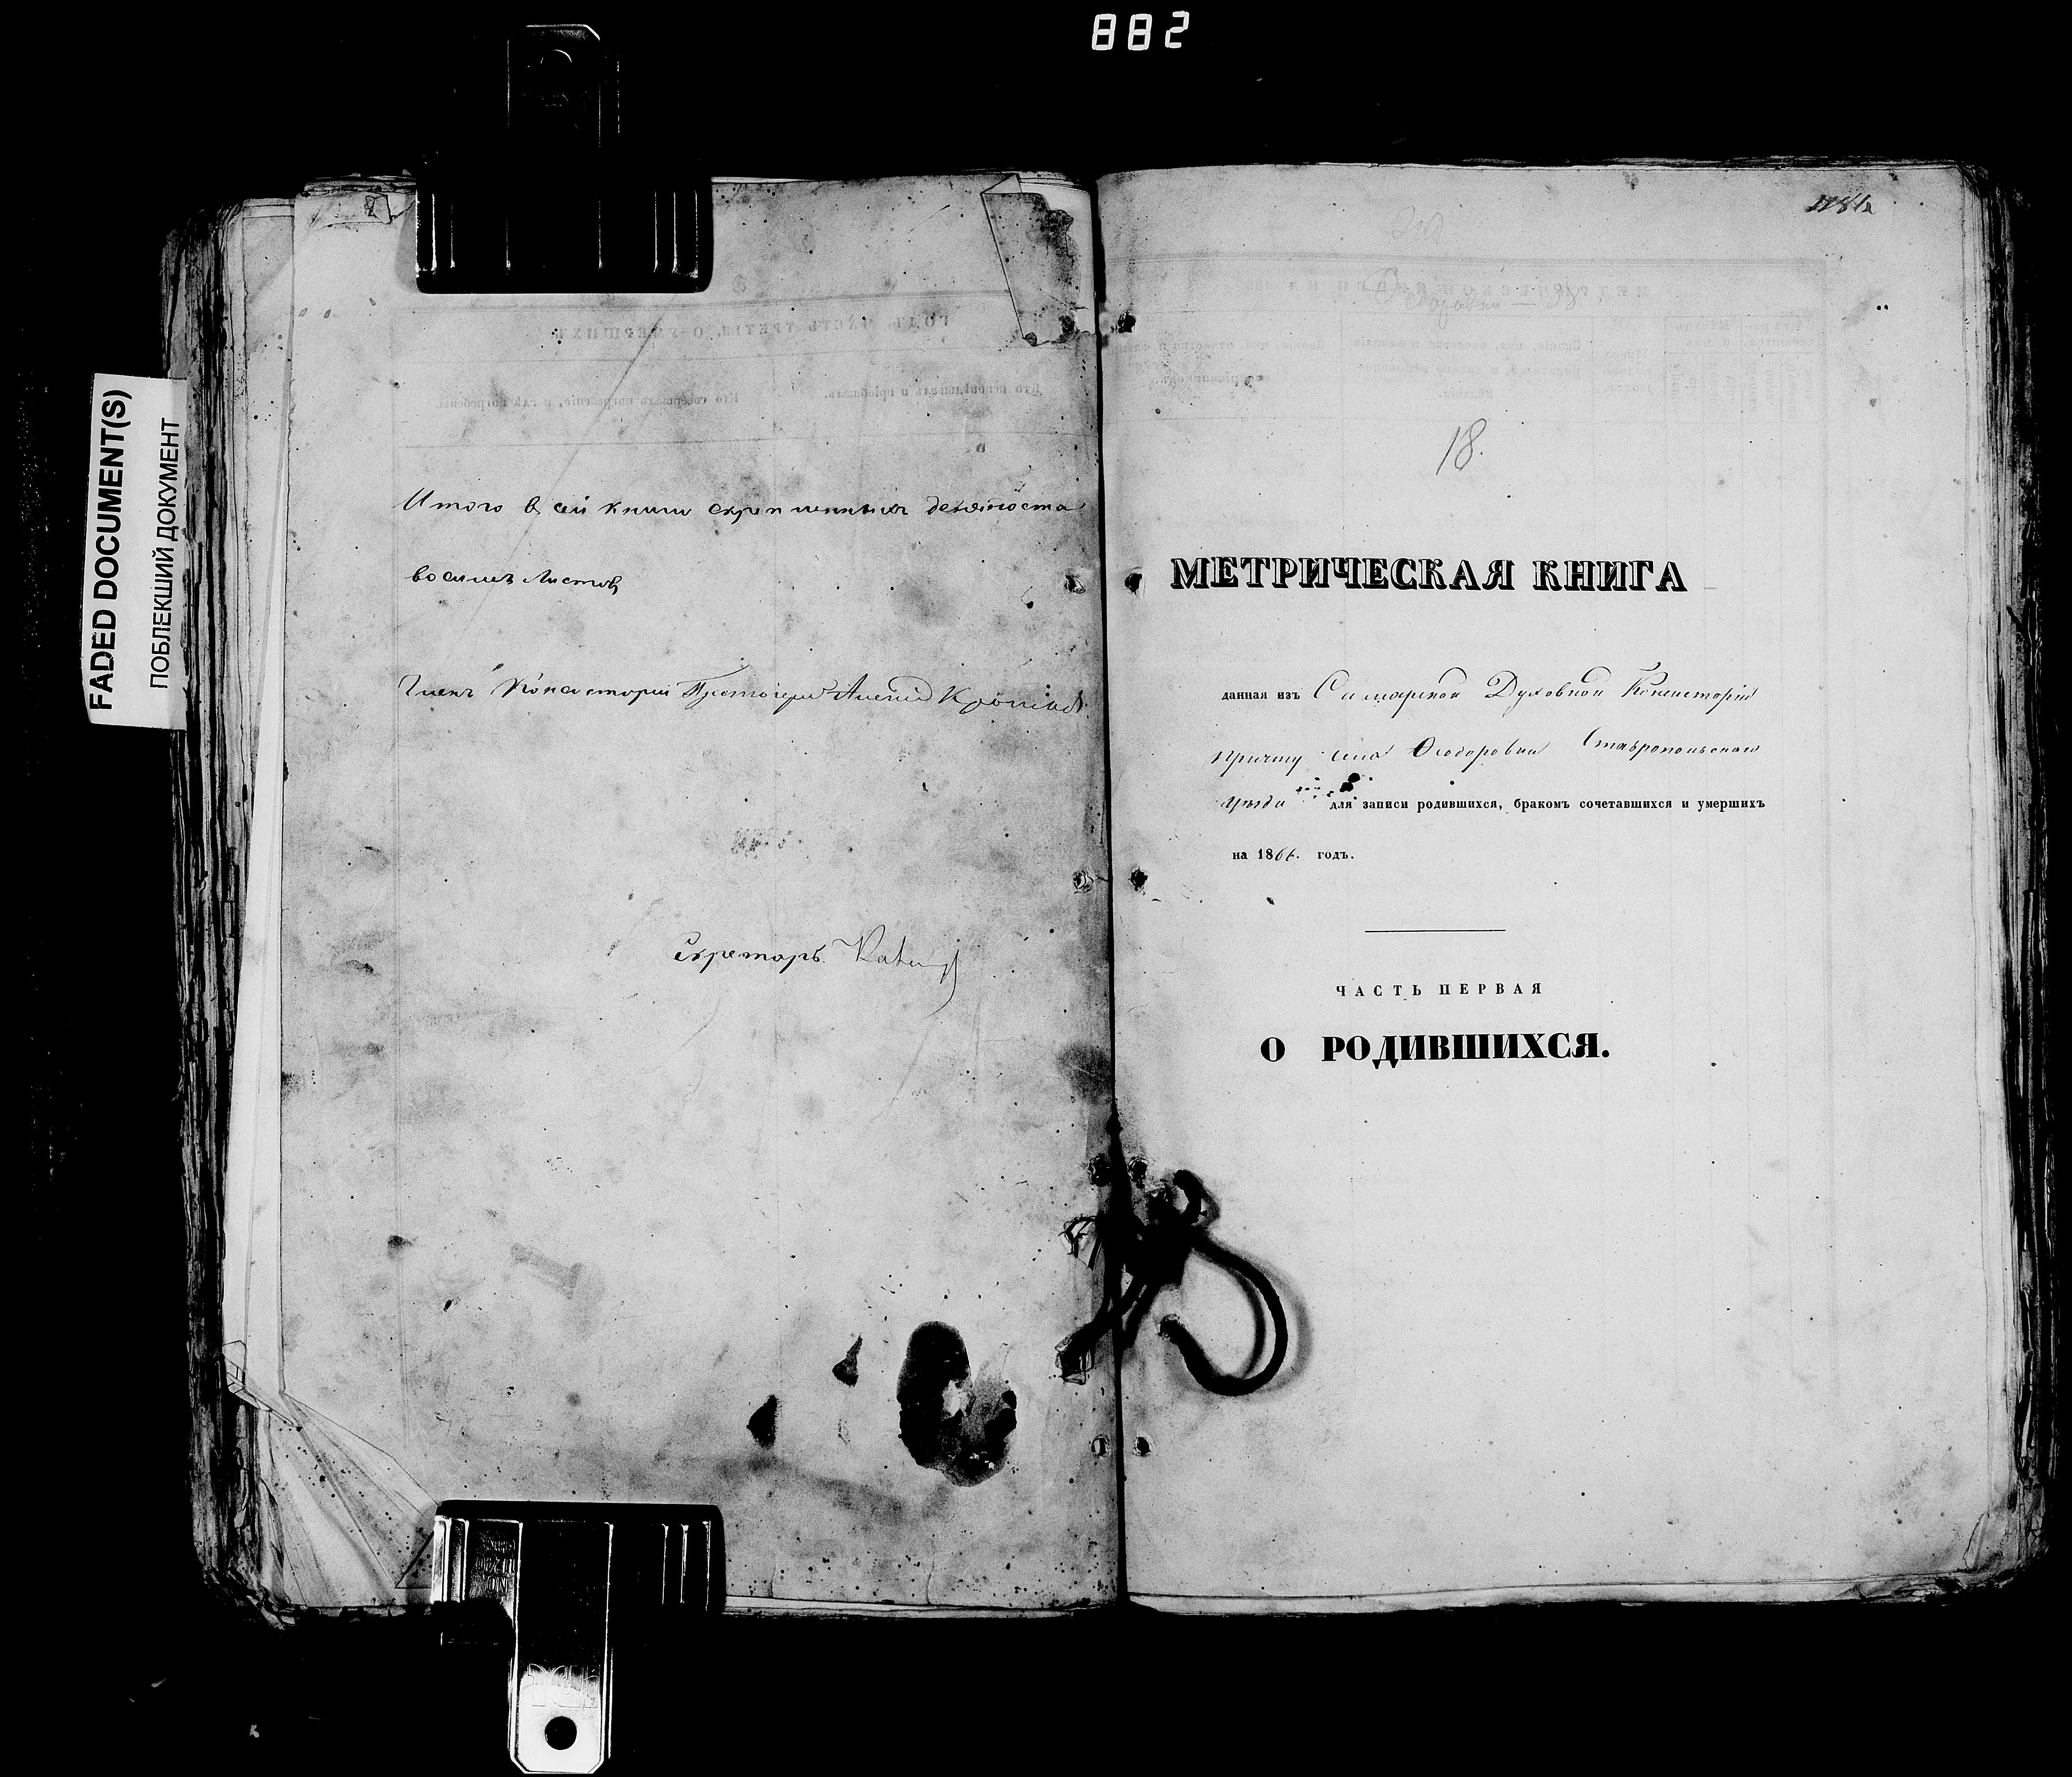 882
FADED DOCUMENT(S)
ПОБЛЕКШИЙ ДОКУМЕНТ
Итого въ сей книги скрепленныхъ девяноста
восимь Листовъ
Членъ Консисторіи Протоіерей Алексій
Секретарь
18.
МЕТРИЧЕСКАЯ КНИГА
данная изъ Самарской Духовной Консисторіи
Причту села Ѳеодоровки Ставропольскаго
уѣзда для записи родившихся, бракомъ сочетавшихся и умершихъ
на 186 годъ.
ЧАСТЬ ПЕРВАЯ
О РОДИВШИХСЯ.